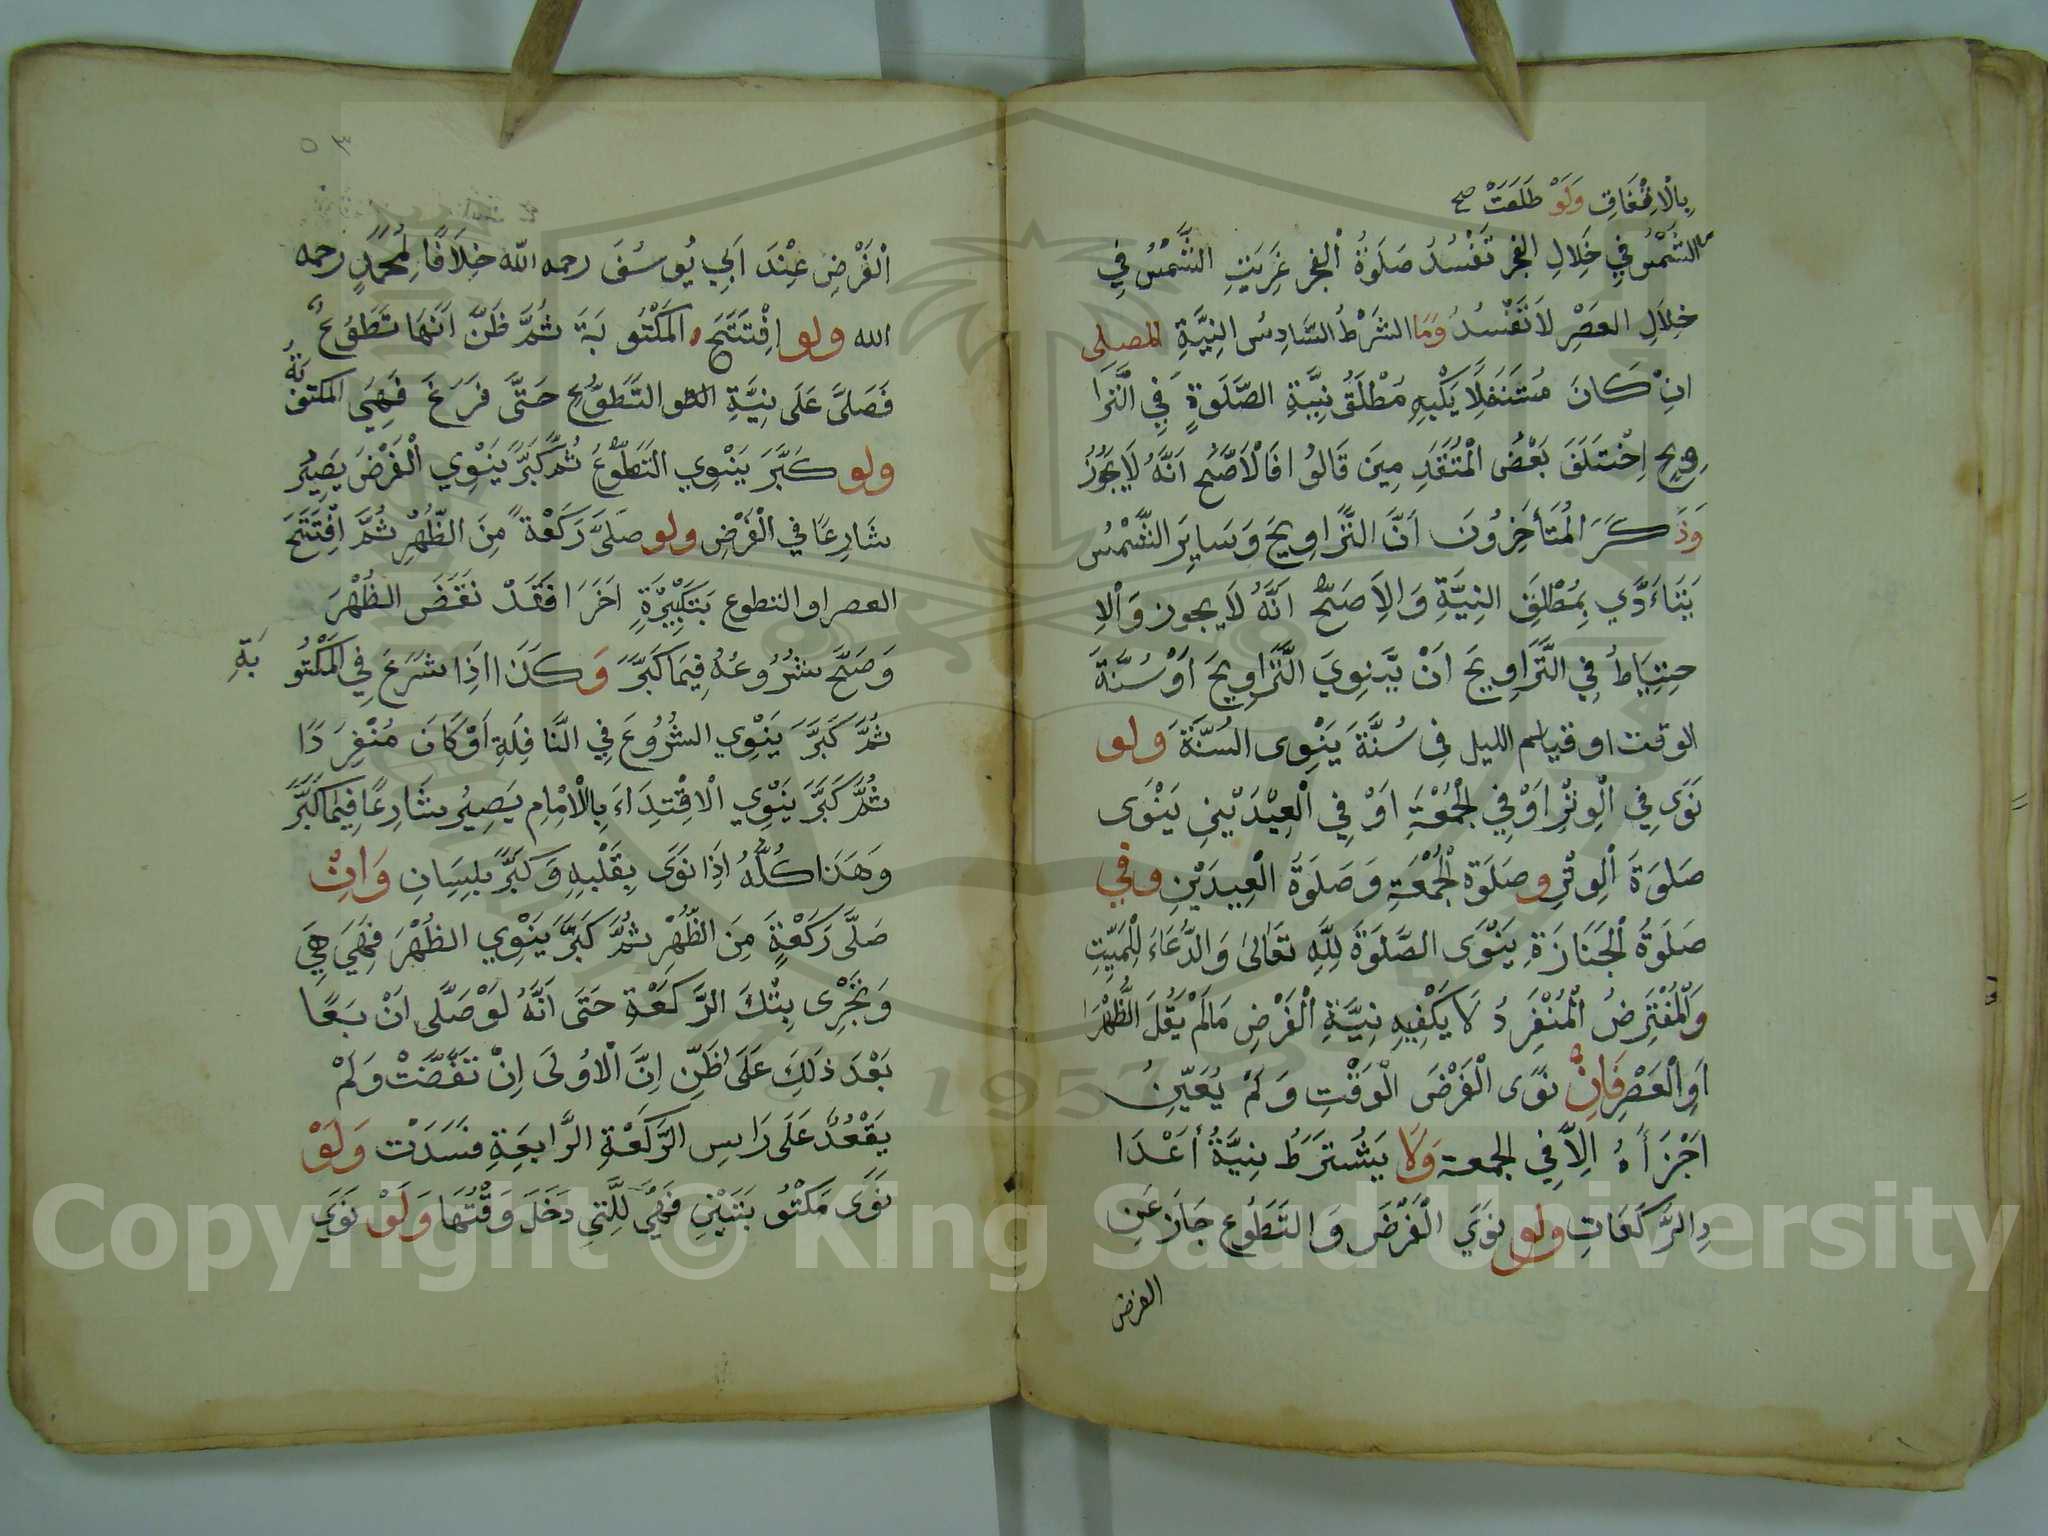 بِالْاِتِّفَاقِ وَلَوْ طَلَعَتْ صح
الشَّمْسُ فِي خِلَالِ الفجر تَفْسُدُ صَلَوةُ الْفجر غَرَبَتِ الشَّمْسُ فِي
خِلَالِ العَصْرِ لَا تَفْسُدُ وَمَا الشَرْطُ السَّادِسُ النِيَّةِ المصلى
انْ كَانَ مُتَنَفِّلًا يَكْفِيهِ مُطْلَقُ نِيَّةِ الصَّلَوةِ فِي التَّرَا
وِيحِ اِخْتَلَفَ بَعْضُ الْمُتَقَدِّمِينَ قَالُوا فَالْاَصَحُّ اَنَّهُ لَا يَجُوزُ
وَذَكَرَ الْمُتَأَخِرُونَ اَنَّ التَّرَاوِيحَ وَسَايِرَ الشَّمْسُ
يَتَاَدَّي بِمُطْلَقِ النِيَّةِ وَالْاَصَحُّ اَنَّهُ لَا يجوز وَالْاِ
حتِيَاطُ فِي التَّرَاوِيحَ اَنْ يَنوِيَ التَّرَاوِيحَ اَوْ سُنَّةَ
الوقت او قيام الليل فِى سُنَّةَ يَنْوِى السُنَّةَ ولو
نَوَى فِي الْوِتْرِ اَوْ فِي الْجُمُعَةِ اَوْ فِي الْعِيْدَيْنِ يَنْوَى
صَلوَةَ الْوِتْرِ وصَلَوَةَ الْجُمْعَةِ وَصَلَوَةُ الْعِيدَيْنِ وفي
صَلَوَةُ الْجَنَازَةِ يَنْوَى الصَّلَوَةَ لِلَّهِ تَعَالىٰ وَالدُّعَاءَ لِلْمَيِّتِ
وَالْمُفْتَرِضُ الْمُنْفَرِدُ لَا يَكْفِيهِ نِيَّةِ الْفَرْضِ مَالَمْ يَقُلْ الظُّهْرَ
اَوِالْعَصْرِ فَاِنْ نَوَى الْفَرْضَ الْوَقْتِ وَلَمْ يُعَيِّنُ
اَجْزَأَهُ اِلَّا فِي الجمعة وَلَا يَشْتَرَطُ نِيَّةُ أعْدَا
دِ الرَّكَعَاتِ ولو نَوَي الْفَرْضَ وَالتَطَوُع جَازَ عَنِ
الفرض
٥٣
الْفَرْضِ عِنْدَ اَبِي يُوسُفَ رحمه الله خِلَافًا لِمُحَمَّدٍ رحمه
الله ولو اِفْتَتَحَ الْمَكْتُوبَةَ ثُمَّ ظَنَّ اَنَّهَا تَطَوُعٌ
فَصَلىَّ عَلَى نِيَّةِ التَّطَوُّعِ حَتَّى فَرَغَ فَهِيَ المكتوبَةُ
ولو كَبَّرَ يَنْوِي التَطَوُّعَ ثُمَّ كَبَّرَ يَنْوِي الْفَرْضَ يَصِيْرُ
شَارِعًا فِي الْفَرْضِ ولو صَلىَّ رَكَعْةً مِنَ الظُّهْرِ ثُمَّ افْتَتَحَ
العصر او التطوع بَتَكْبِيْرَةِ اَخَرَا فَقَدْ نَقَضَ الظُهْرَ
وَصَحَّ شُرُوعُهُ فِيمَا كَبَّرَ وَكَذَا اِذَا شَرَعَ فِي الْمَكْتُوبَةِ
ثُمَّ كَبَّرَ يَنْوِي الشُرُوعَ فِي النَّافِلَةِ اَوْ كَانَ مُنْفِرَدًا
ثُمَّ كَبَّرَ يَنْوِي الْاقْتِدَاءَ بِالْاِمَامِ يَصِيرُ شَارِعًا فِيمَا كَبَّرَ
وَهَذَا كُلُّهُ اِذَا نَوَى بِقَلْبِهِ وَكَبَّرَ بلِسَانِ وَاِنْ
صَلَّى رَكَعْةً مِنَ الظُّهْرِ ثُمَّ كَبَّرَ يَنْوِي الظُهْرَ فَهِيَ هِيَ
وَيَجْزِى بِتْلكَ الرَّكَعْةِ حَتَى اَنَّهُ لَوْ صَلَّى اَرْبَعًا
بَعْدَ ذلَكِ عَلَى ظَنِّ اِنَّ الْاُولَى اِنْ تَقَضَّتْ وَلَمْ
يَقْعُدْ عَلَى رَاسِ الرَّكَعْةِ الرَّابِعَةِ فَسَدَتْ وَلَوْ
نَوَى مَكْتُوبَتَيْنِ فَهِيَ لِلَّتِي دَخَلَ وَقْتُهَا وَلَوْ نَوَي
Copyright © King Saud University
1957